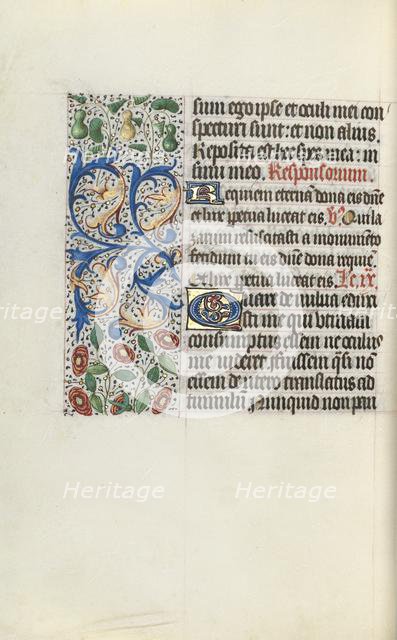 sum ego ipse et oculi mei con
specturi sunt: et non alius.
Reposita est hec spes mea: in
sinu meo. Responsorium.
Requiem eternam dona eis dñe
et lux perpetua luceat eis. V. Qui la
zarum resuscitasti a monumẽto
fetidum tu eis dñe dona requiẽ.
et lux perpetua luceat eis. Le. ix.
Quare de vulva eduxi
sti me qui utinam
consumptus essem ne oculus
me videret fuissem q̃si nõ
essem de utero translatus ad
tumulũ Nunquid non pau
Heritage Heritage